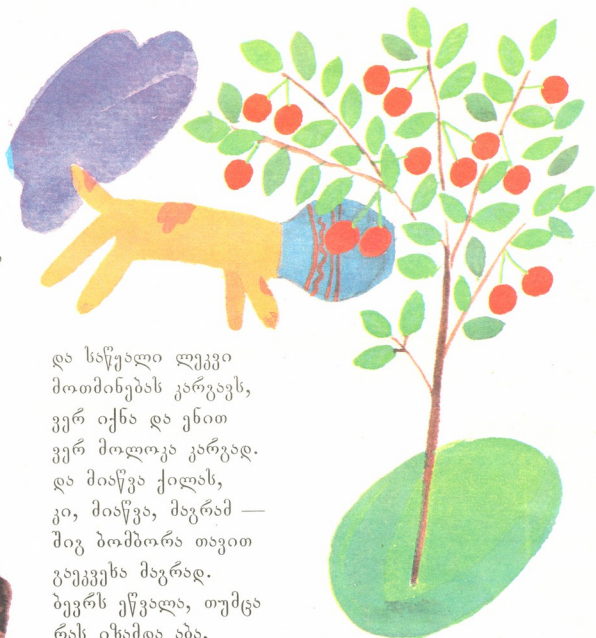 და საწყალი ლეკვი
მოთმინებას კარგავს,
ვერ იქნა და ენით
ვერ მოლოკა კარგად.
და მიაწვა ქილას,
კი, მიაწვა, მაგრამ —
შიგ ბომბორა თავით
გაეკვეხა მაგრად.
ბევრს ეწვალა, თუმცა
რას იზამდა აბა,